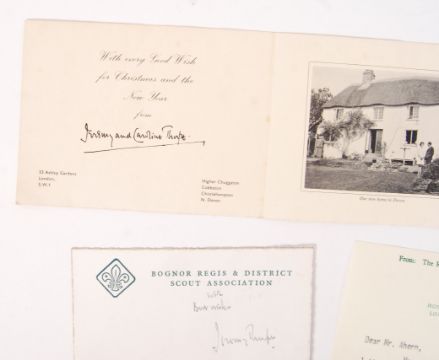 With every Good Wish
for Christmas and the
New Year
from
Jeremy and Caroline Thorpe.
Ashley Gardens
London,
S.W.1
Higher Chuggaton
Cobbaton
Chittlehampton
N. Devon
Our new home in Devon
BOGNOR REGIS & DISTRICT
SCOUT ASSOCIATION
With
Best wishes
Jeremy Thorpe
From: The R
Dear Mr. Ahern,